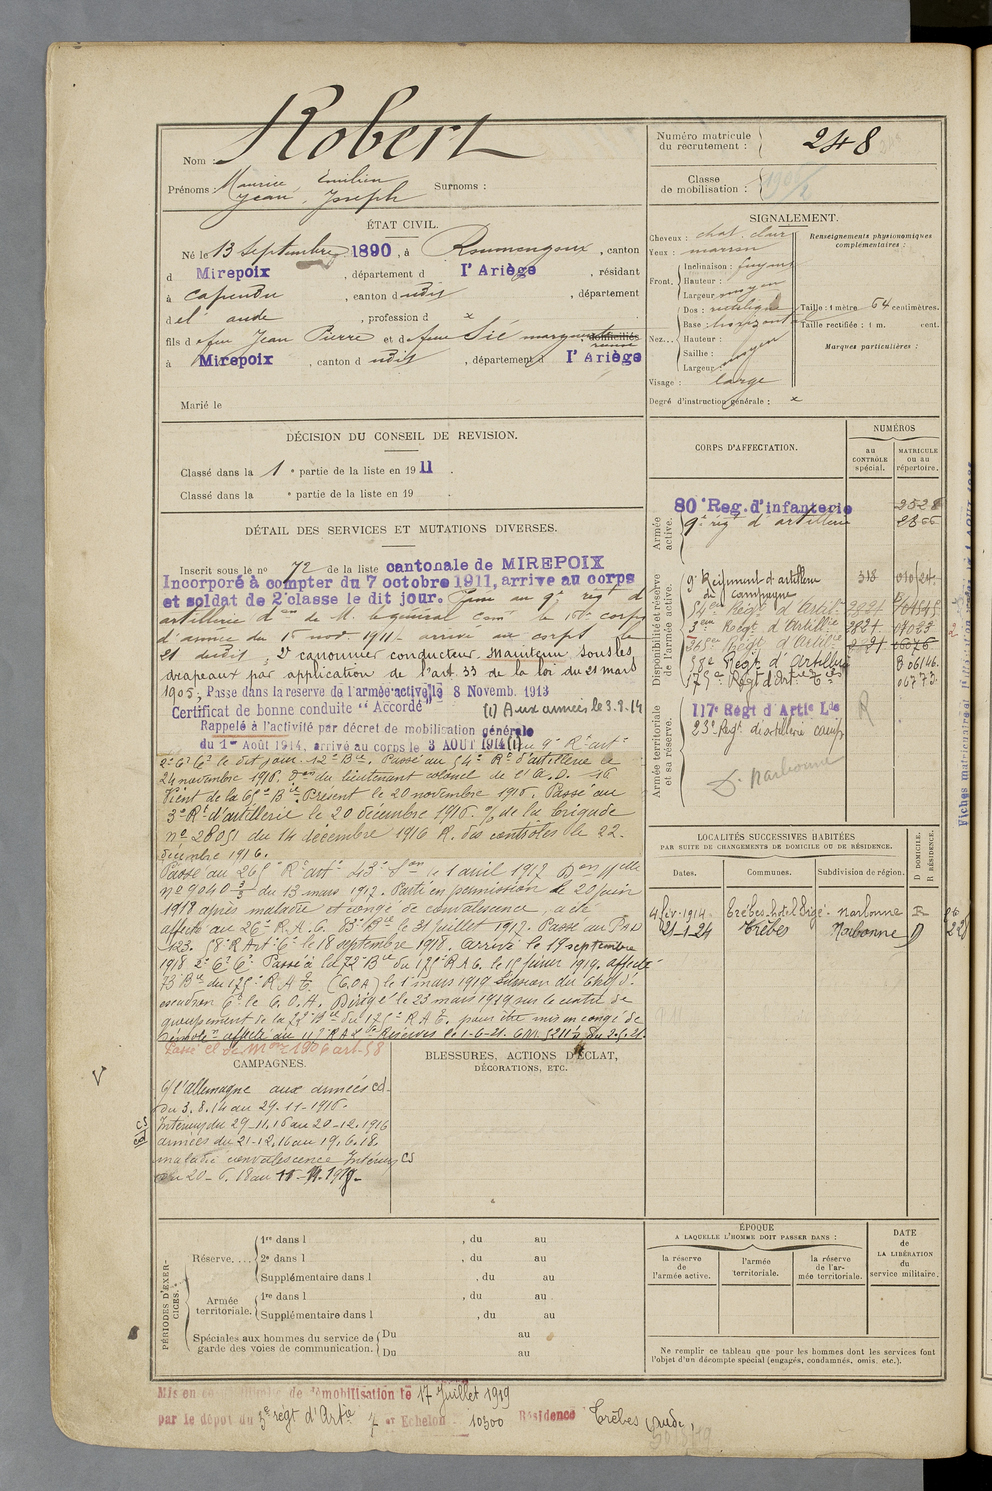 Robert
Nom :
Prénoms : Maurice Emilien
Jean, Joseph
Surnoms :
Numéro matricule
du recrutement :
248
Classe
de mobilisation :
ÉTAT CIVIL.
Né le 13 Septembre 1890, à Roumengoux, canton
d Mirepoix, département d l'Ariège, résidant
à Capendu, canton dudit, département
d el' aude, profession d x
fils d e feu Jean Pierre et d e feue Sié domiciliés
à Mirepoix, canton dudit, département d l'Ariège
Marié le
SIGNALEMENT.
Cheveux : chat. clair
Yeux : marron
Front. Inclinaison : fuyant
Hauteur :
Largeur moyen
Nez... Dos : rectiligne
Base : horizontale
Hauteur :
Saillie :
Largeur : moyen
Visage : large
Degré d'instruction générale : x
Renseignements physionomiques
complémentaires :
Taille : 1 mètre 64 centimètres.
Taille rectifiée : 1 m. cent.
Marques particulières :
DÉCISION DU CONSEIL DE REVISION.
Classé dans la 1e partie de la liste en 1911.
Classé dans la e partie de la liste en 19 .
DÉTAIL DES SERVICES ET MUTATIONS DIVERSES.
Inscrit sous le no 72 de la liste cantonale de MIREPOIX
Incorporé à compter du 7 octobre 1911, arrive au corps
et soldat de 2e classe le dit jour. Passé au 9e régt d'
artillerie don de M. le général Comt le 16e corps
d'armée du 15 novbre 1911 arrivé au corps le
21 dudit, 2e canonnier conducteur. Maintenu sous les
drapeaux par application de l'art. 33 de la loi du 21 mars
1905, Passe dans la reserve de l'armée active le 8 Novemb. 1913
Certificat de bonne conduite "Accordé" (1) Aux armées le 3.9.14
Rappelé à l'activité par décret de mobilisation générale
du 1er Août 1914, arrivé au corps le 3 AOUT 1914 (1) au 9e Rt artie
2e Ct Ct le dit jour. 12e Bie. Passé au 54e Rt d'artillerie le
24 novembre 1916. Don du lieutenant colonel de l'A.D. 16
Vient de la 65e Bie. Présent le 20 novembre 1916. Passé au
3e Rt d'artillerie le 20 décembre 1916. de la brigade
no 28051 du 14 décembre 1916 R. des contrôles le 22
décembre 1916.
Passé au 265e Rt artie 43e le 1 avril 1917 Don
no 9040 3/3 du 13 mars 1917. Parti en permission le 20 juin
1918 après maladie et congé de convalescence, a été
affecté au 26e R.A.C. 53e Bie le 31 juillet 1917. Passé au P.A.D
123. 58e R Art C le 18 septembre 1918. arrivé le 19 septembre
1918 2e Ct Ct. Passé à la 72e Bie du 175e R.A.C. le 15 février 1919. affecté
73 Bie du 175e R.A.T. (C.O.A) le 1er mars 1919
escadron Ct le C.O.A. Dirigé le 23 mars 1919 sur le centre de
groupement de la 77e Bie du 175e R.A.T. pour être mis en congé de
affecté au 117e R A L Réserves le 1-6-21.
CAMPAGNES.
C/ l'allemagne aux armées cd
du 3.8.14 au 29.11-1916.
Intérieur du 29-11.16 au 20-12.1916
armées du 21-12.16 au 19.6.18.
maladie convalescence Intérieur CS
du 20-6.18 au
BLESSURES, ACTIONS D'ÉCLAT,
DÉCORATIONS, ETC.
CORPS D'AFFECTATION.
NUMÉROS
au
CONTRÔLE
spécial.
MATRICULE
ou au
répertoire.
Armée
active.
80e Reg. d'infanterie
9e régt d'artillerie
Disponibilité et réserve
de l'armée active.
9e Régiment d'artillerie
de campagne 318
54eme Régt d'Artie
3eme Régt d'Artillie 2827
265eme Régt d'Artie
58e Régt d'Artillerie
175e Régt d'Artie
Armée territoriale
et sa réserve.
117e Régt d'Artie Lde R
23e Régt d'artillerie camp
D. Narbonne
LOCALITÉS SUCCESSIVES HABITÉES
PAR SUITE DE CHANGEMENTS DE DOMICILE OU DE RÉSIDENCE.
Dates.
Communes.
Subdivision de région.
D DOMICILE.
R RÉSIDENCE.
4 fév. 1914. Trèbes hôtel Pigé Narbonne R
21-1-24 Trèbes Narbonne D
PÉRIODES D'EXERCICES.
Réserve.... 1re dans l , du au
2e dans l , du au
Supplémentaire dans l , du au
Armée
territoriale. 1re dans l , du au
Supplémentaire dans l , du au
Spéciales aux hommes du service de
garde des voies de communication. Du au
Du au
ÉPOQUE
A LAQUELLE L'HOMME DOIT PASSER DANS :
la réserve
de
l'armée active.
l'armée
territoriale.
la réserve
de l'ar-
mée territoriale.
DATE
de
LA LIBÉRATION
du
service militaire.
Ne remplir ce tableau que pour les hommes dont les services font
l'objet d'un décompte spécial (engagés, condamnés, omis, etc.).
Mis en de démobilisation le 17 Juillet 1919
par le dépôt du 3e régt d'Artie er Echelon 10300 Résidence Trèbes (Aude)